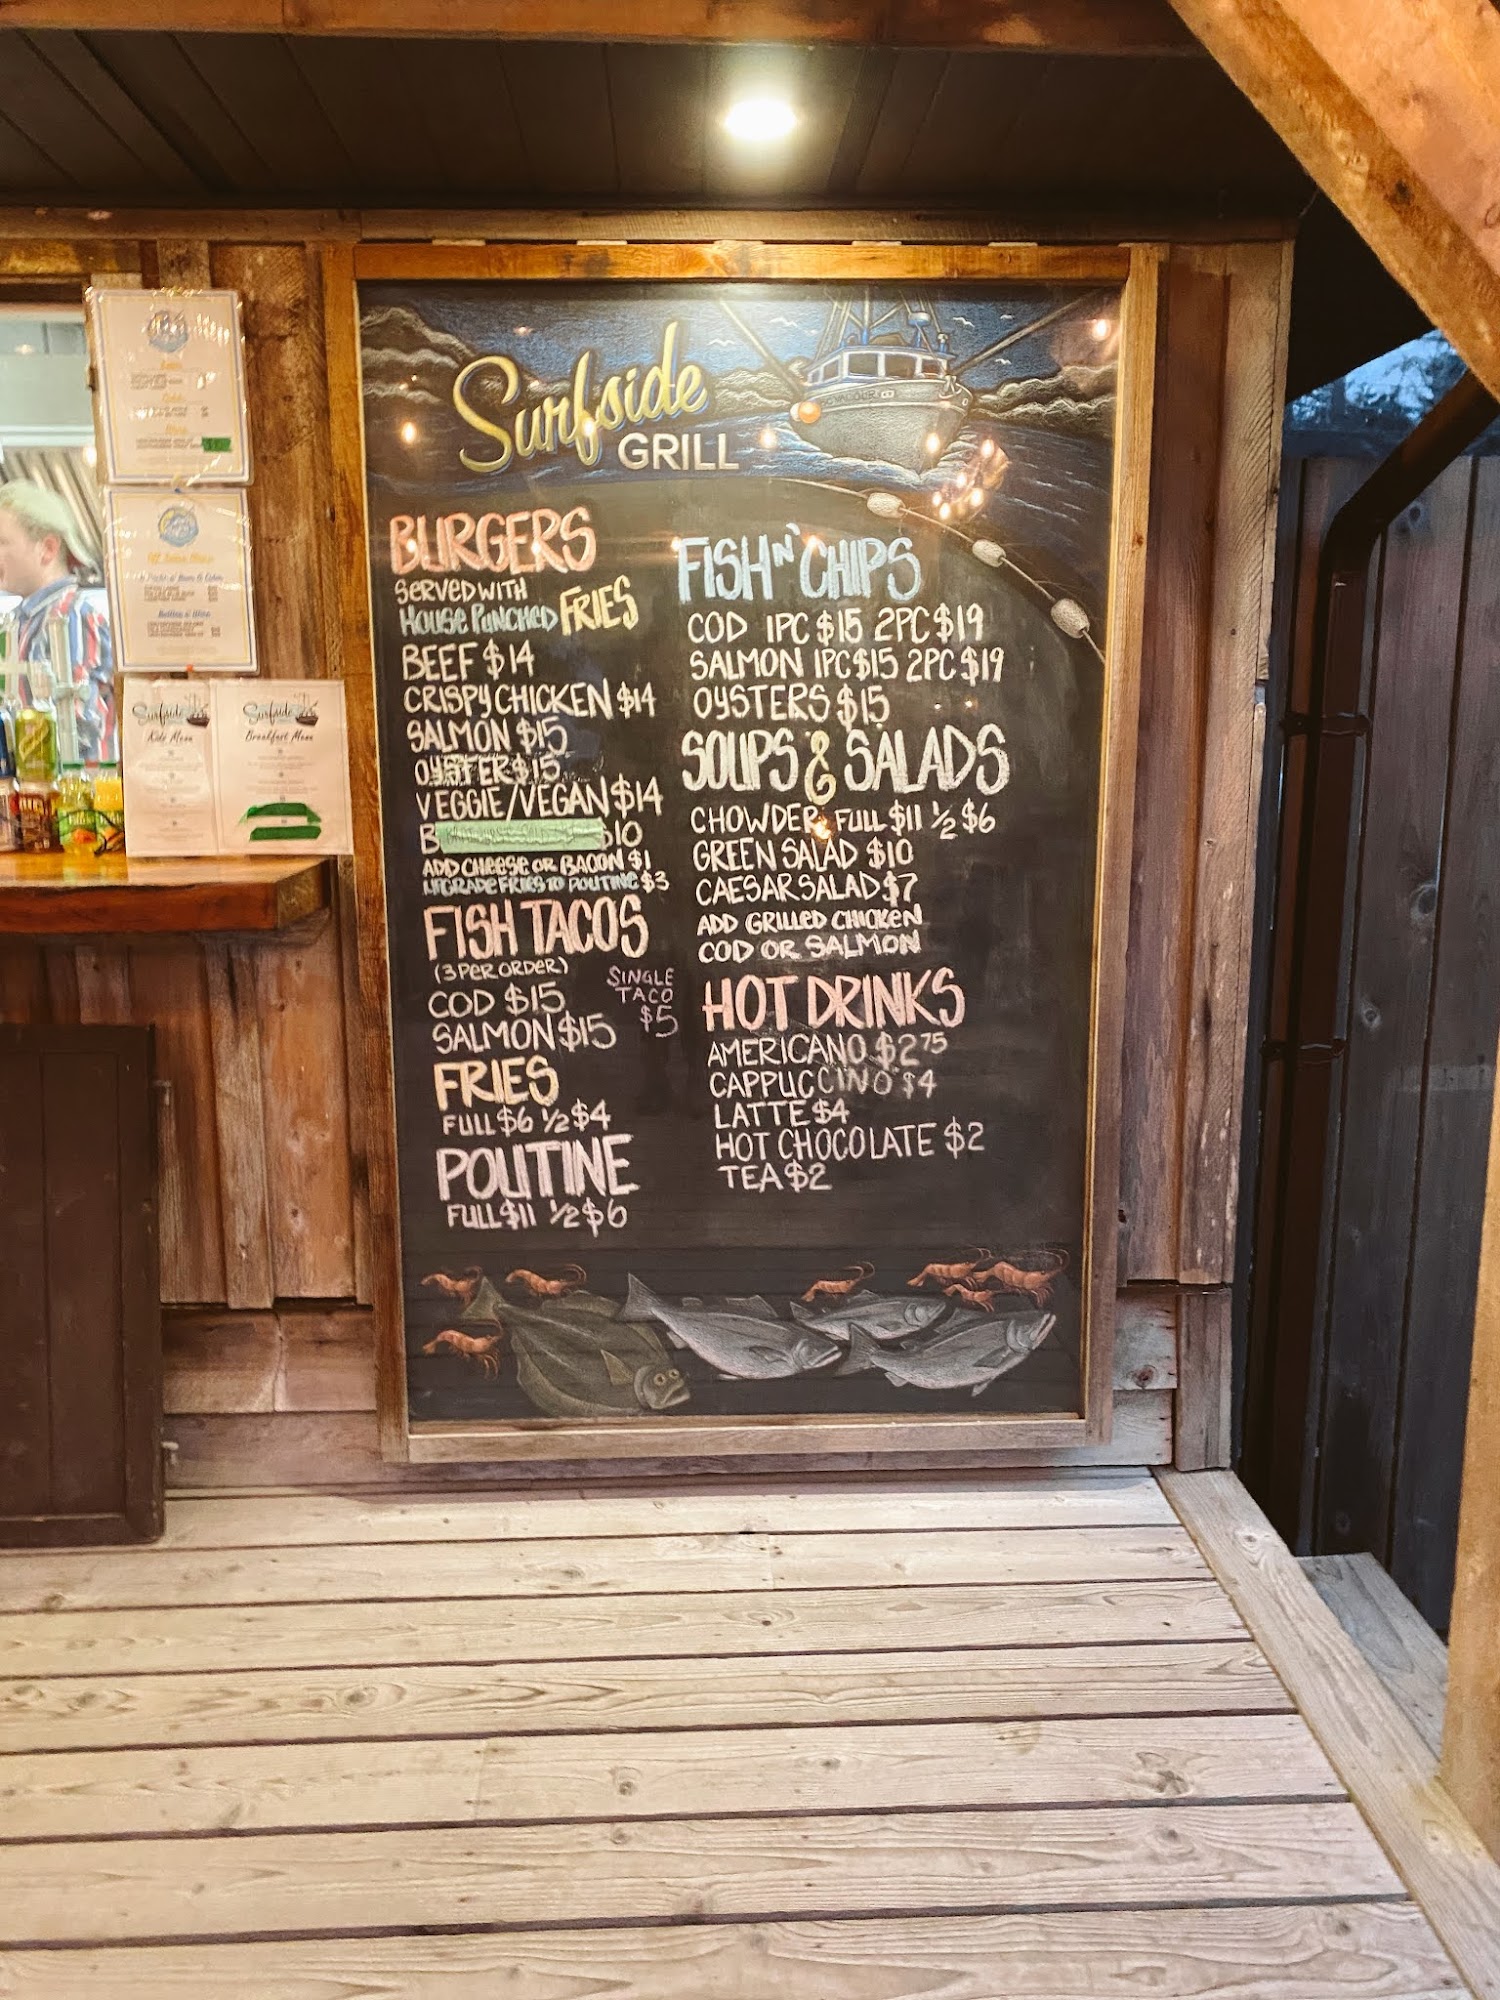 Surfside
GRILL
BURGERS
SERVED WITH
HOUSE PUNCHED FRIES
BEEF $14
CRISPY CHICKEN $14
SALMON $15
OYSTER $15
VEGGIE/VEGAN $14
B $10
ADD CHEESE OR BACON $1
UPGRADE FRIES TO POUTINE $3
FISH TACOS
(3 PER ORDER)
SINGLE
TACO
$5
COD $15
SALMON $15
FRIES
FULL $6 1/2 $4
POUTINE
FULL $11 1/2 $6
FISH N' CHIPS
COD 1PC $15 2PC $19
SALMON 1PC $15 2PC $19
OYSTERS $15
SOUPS & SALADS
CHOWDER FULL $11 1/2 $6
GREEN SALAD $10
CAESAR SALAD $7
ADD GRILLED CHICKEN
COD OR SALMON
HOT DRINKS
AMERICANO $2 75
CAPPUCCINO $4
LATTE $4
HOT CHOCOLATE $2
TEA $2
Surfside
Kids Menu
Surfside
Breakfast Menu